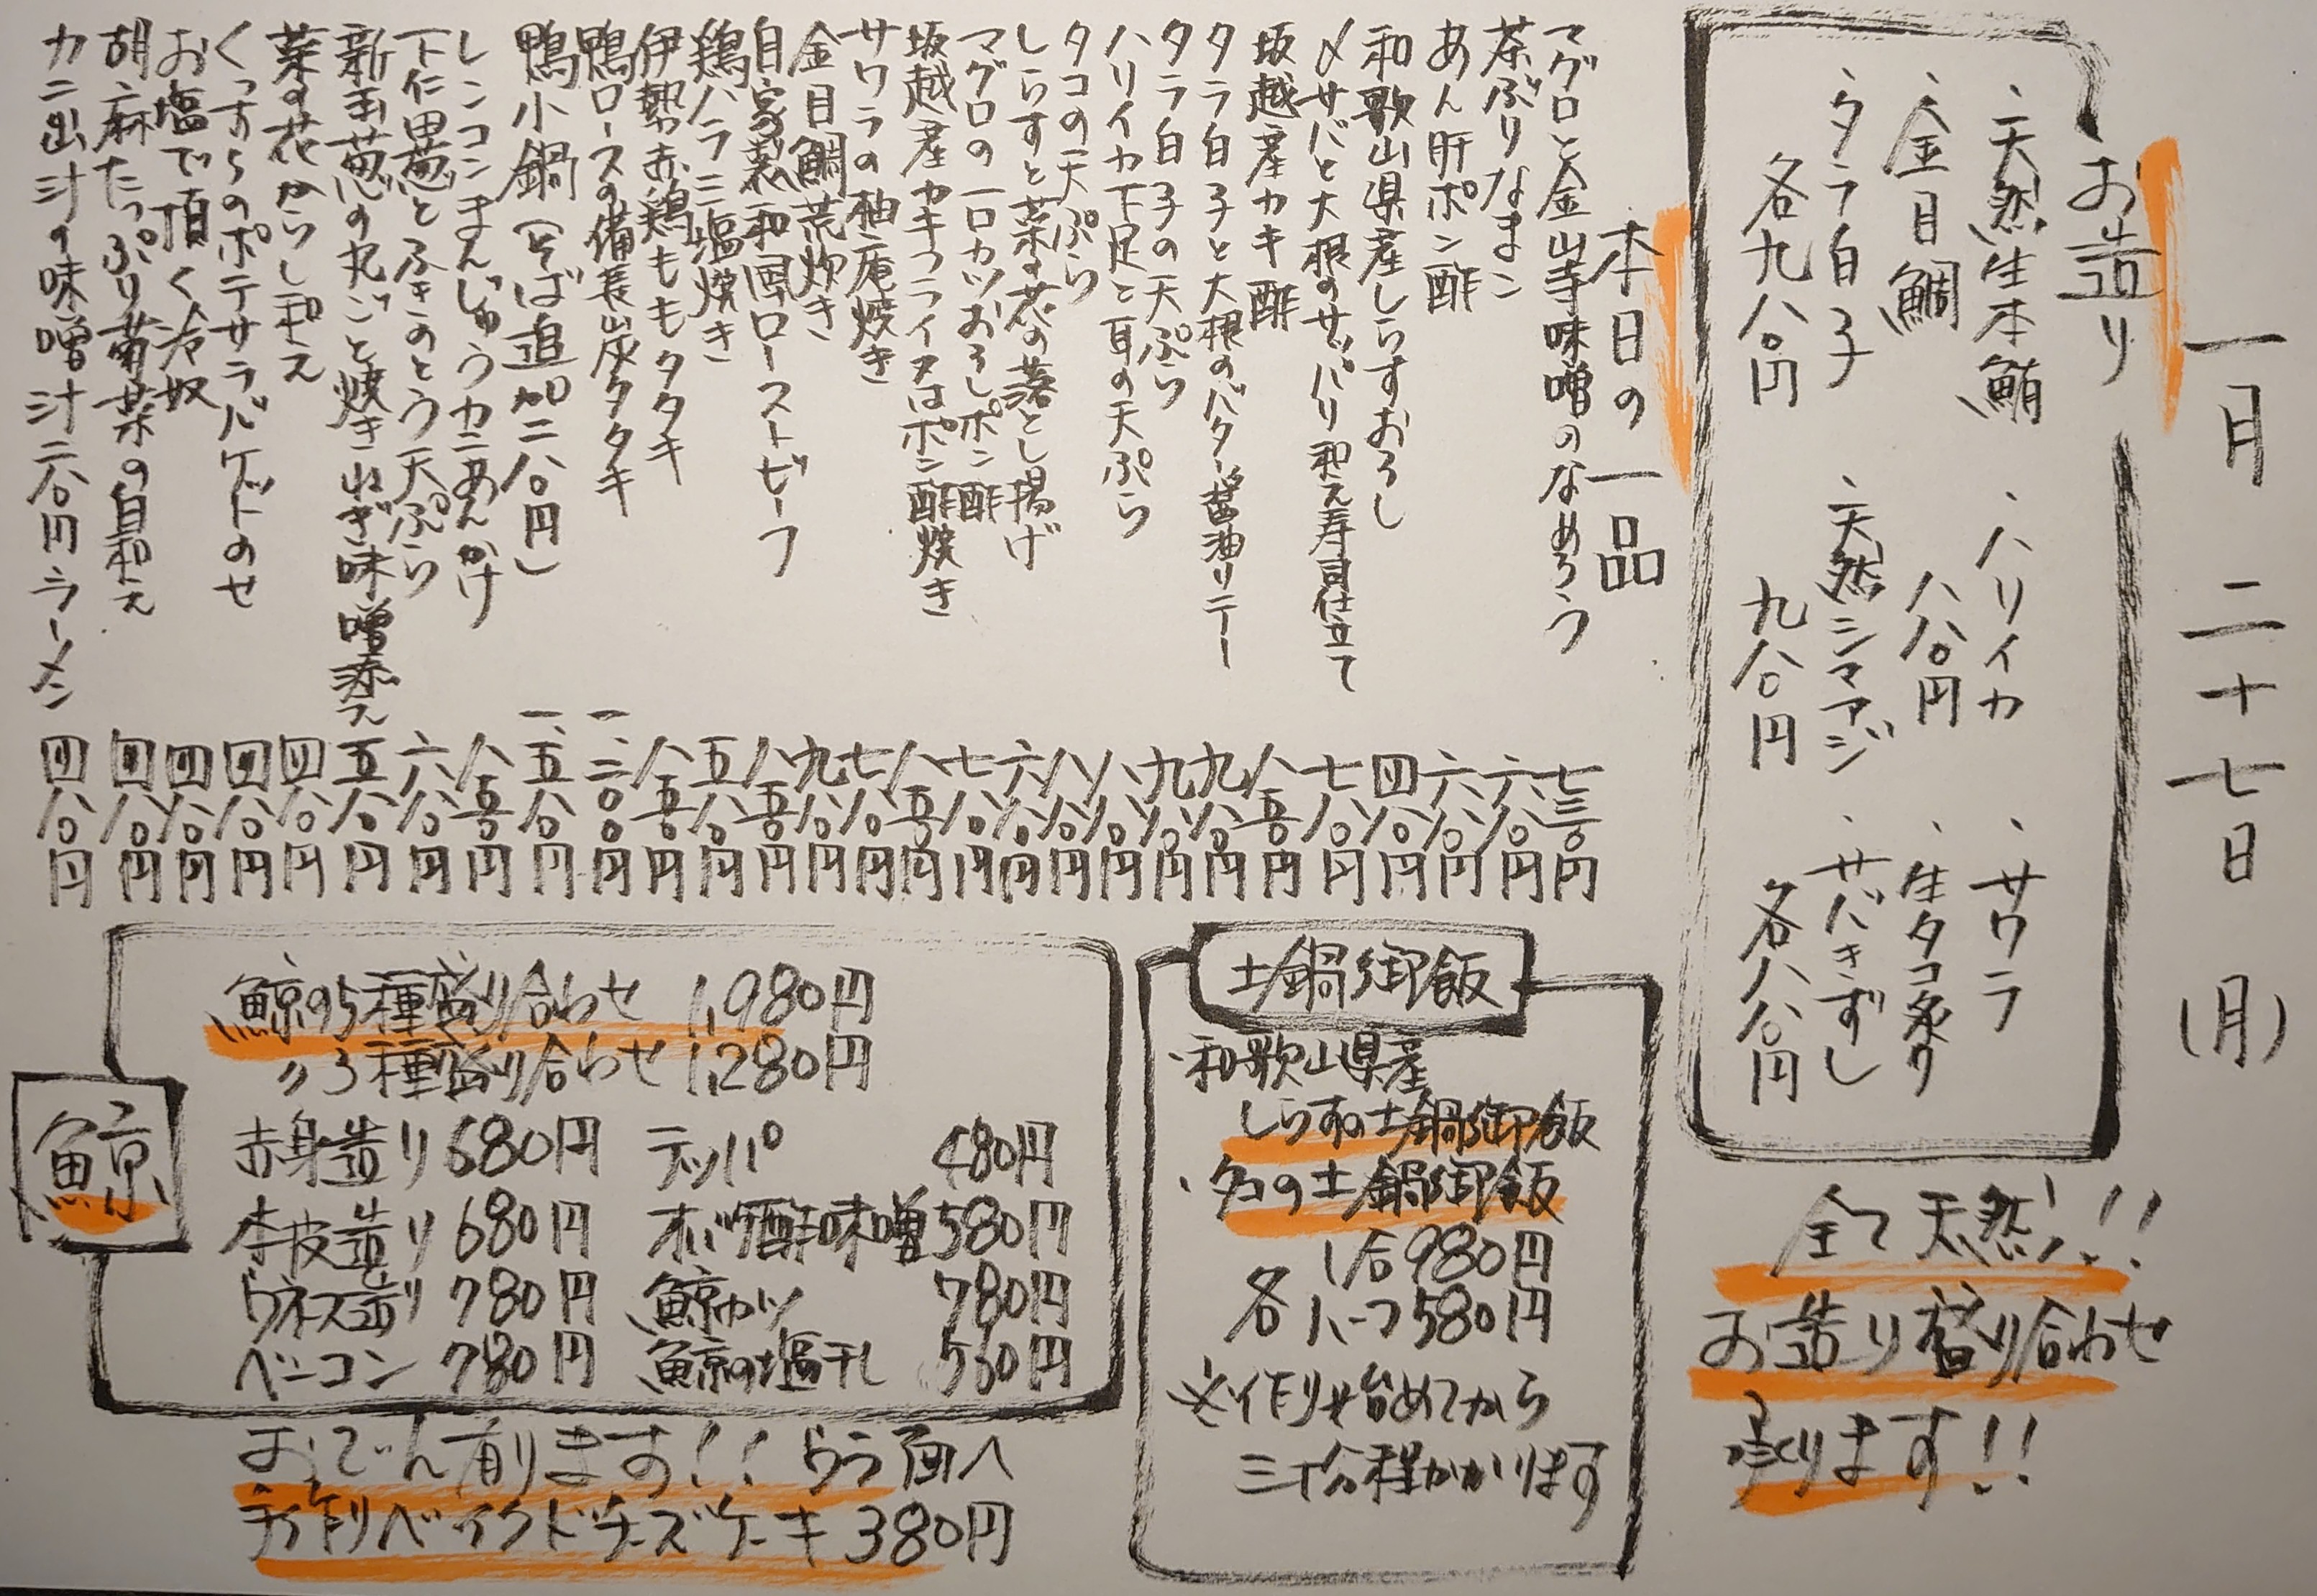 一月二十七日(月)
お造り
・天然生本鮪
・金目鯛
・タラ白子
各九八〇円
・ハリイカ
八八〇円
・天然シマアジ
九八〇円
・サワラ
・生タコ炙り
・サバきずし
各八八〇円
全て天然!!
お造り盛り合わせ
承ります!!
本日の一品
マグロと金山寺味噌のなめろう 七三〇円
茶ぶりなまこ 六八〇円
あん肝ポン酢 六八〇円
和歌山県産しらすおろし 四八〇円
〆サバと大根のサッパリ和え寿司仕立て 七八〇円
坂越産カキ酢 八五〇円
タラ白子と大根のバター醤油ソテー 九八〇円
タラ白子の天ぷら 九八〇円
ハリイカ下足と耳の天ぷら 八八〇円
タコの天ぷら 八八〇円
しらすと菜の花の落とし揚げ 六八〇円
マグロの一口カツおろしポン酢 七八〇円
坂越産カキフライ又はポン酢焼き 八五〇円
サワラの柚庵焼き 七八〇円
金目鯛荒炊き 九八〇円
自家製和風ローストビーフ 八五〇円
鶏ハラミ塩焼き 五八〇円
伊勢赤鶏ももタタキ 八五〇円
鴨ロースの備長炭タタキ 一、二〇〇円
鴨小鍋(そば追加二八〇円) 一、五八〇円
レンコンまんじゅうカニあんかけ 八五〇円
下仁田葱とふきのとう天ぷら 六八〇円
新玉葱の丸ごと焼きねぎ味噌添え 五八〇円
菜の花からし和え 四八〇円
くっすらのポテサラバケットのせ 四八〇円
お塩で頂く冷奴 四八〇円
胡麻たっぷり菊菜の白和え 四八〇円
カニ出汁の味噌汁二八〇円ラーメン 四八〇円
土鍋御飯
・和歌山県産
しらすの土鍋御飯
・タコの土鍋御飯
各 1合980円
ハーフ580円
※作り始めてから
三十分程かかります
鯨
鯨の5種盛り合わせ 1,980円
〃3種盛り合わせ 1,280円
赤身造り 680円 テッパ 480円
本皮造り 680円 オバケ酢味噌 580円
ウネス造り 780円 鯨カツ 780円
ベーコン 780円 鯨の塩干し 530円
おでん有ります!! ウラ面へ
手作りベイクドチーズケーキ 380円